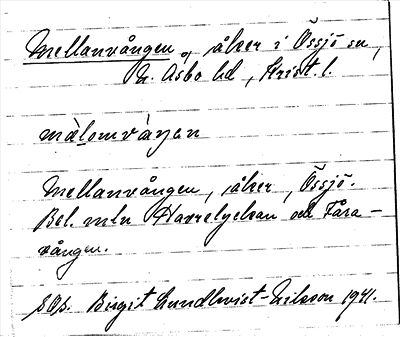 Mellanvången, åker i Össjö sn,
N. Åsbo hd, Krist. l.
mälomvàŋan
Mellanvången, åker, Össjö.
Bel. mln Harrelyckan och Fåra-
vången.
Birgit Lundkvist-Nilsson 1941.